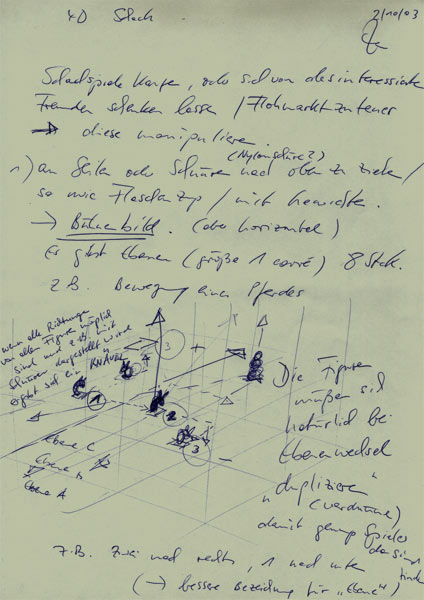 4D Schach
2/10/03
Schachspiele kaufen, oder sich von desinteressierten
Freunden schenken lassen / Flohmarkt zu teuer
→ diese manipulieren.
(Nylonschnüre?)
1) an Seilen oder Schnüren nach oben zu ziehen /
so wie Flaschenzug / mit Gewichte.
→ Bühnenbild. (oder horizontal)
Es gibt Ebenen (größe 1 carré) 8 Stck.
z.B. Bewegung eines Pferdes
wenn alle Richtungen
von allen Figuren möglich
sind und z.B. mit
Schnüren dargestellt würde
ergibt sich ein KNÄUEL
3
4
+
1
2
3
−
Ebene C
Ebene B
Ebene A
Die Figuren
müßen sich
natürlich bei
Ebenenwechsel
"duplizieren"
damit genug Spieler
da sind
z.B. Zwei nach rechts, 1 nach unten
(→ bessere Bezeichnung für "Ebene")